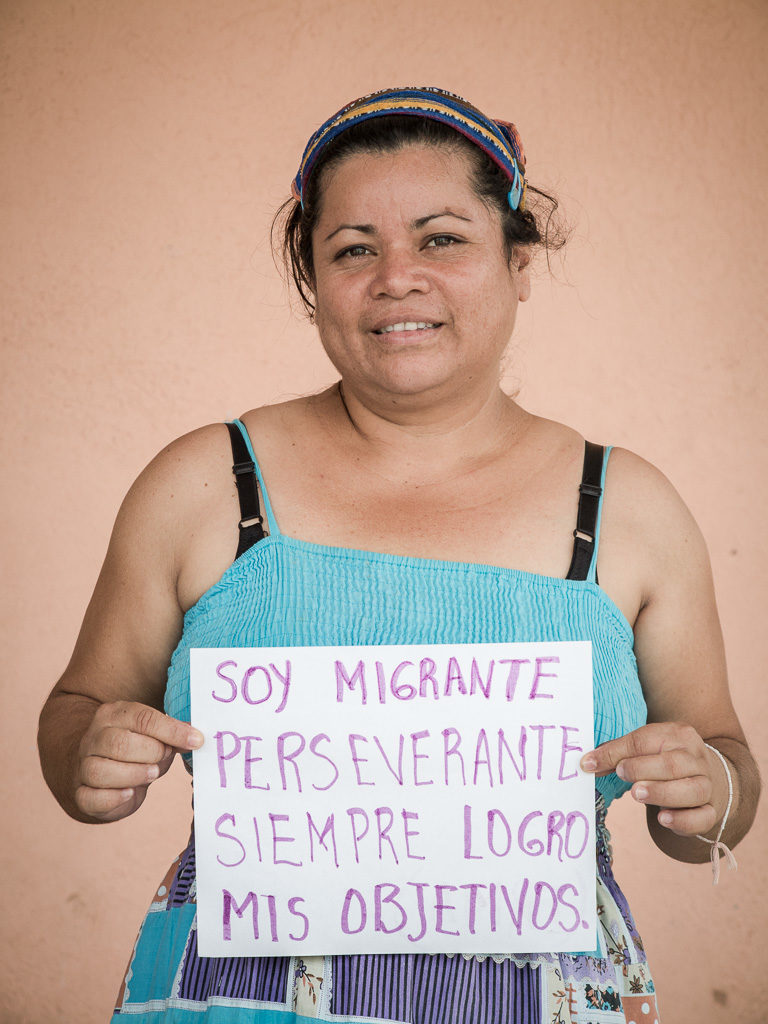 SOY MIGRANTE
PERSEVERANTE
SIEMPRE LOGRO
MIS OBJETIVOS.